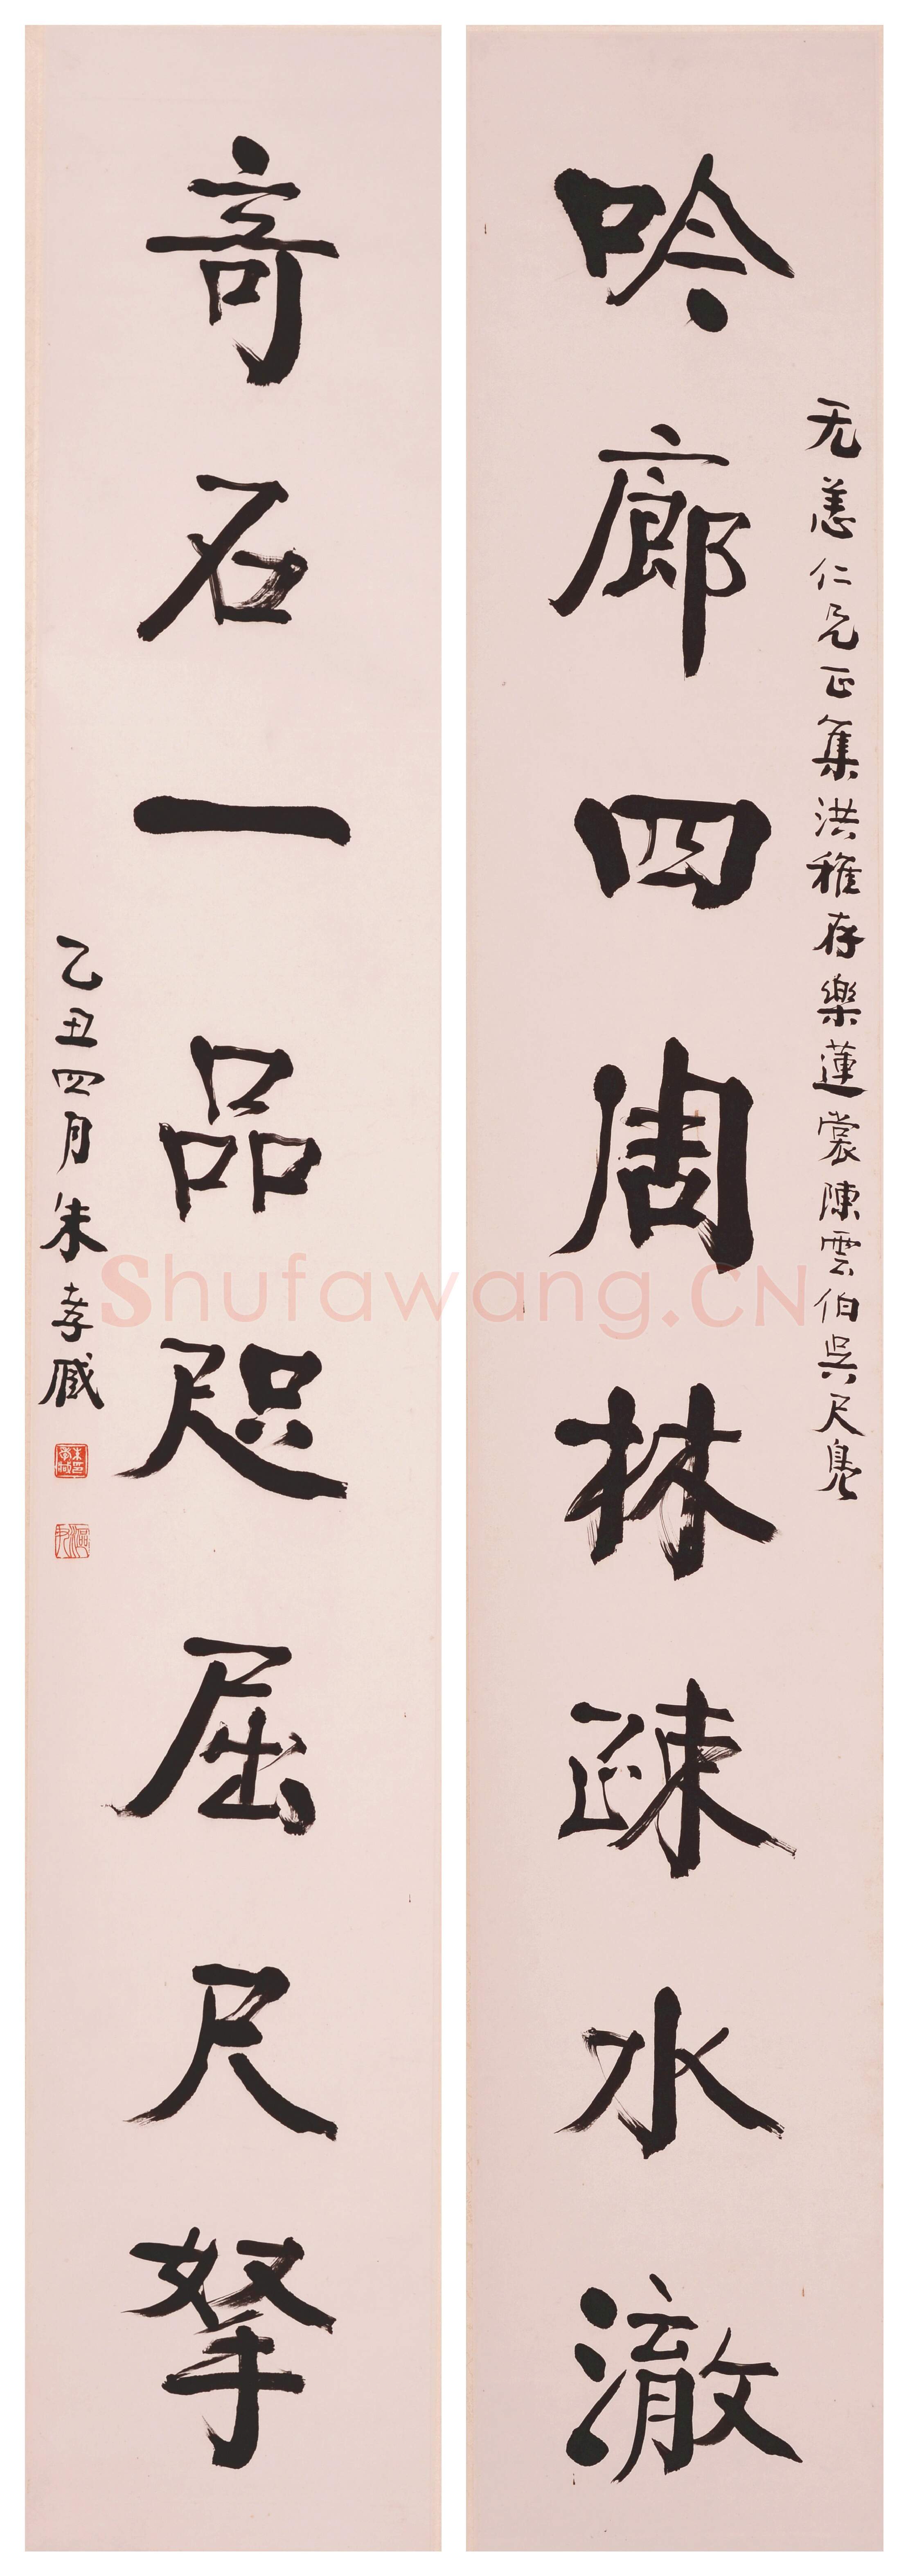 无恙仁兄正集洪稚存樂蓮裳陳雲伯吳尺鳧
吟廊四周林疎水澈
奇石一品咫屈尺拏
乙丑四月朱孝臧
朱孝臧印
漚尹
Shufawang.CN